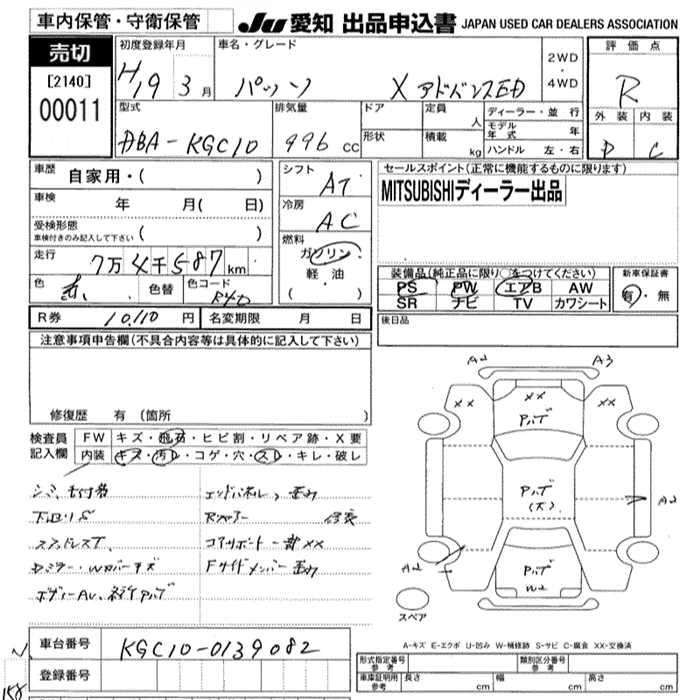 車内保管・守衛保管
JU 愛知 出品申込書 JAPAN USED CAR DEALERS ASSOCIATION
売切
[2140]
00011
初度登録年月
H19 3月
車名・グレード
パッソ
X アドバンスED
2WD
・
4WD
評価点
R
外装 内装
D C
型式
DBA-KGC10
排気量
996 cc
ドア
形状
定員 人
積載 kg
ディーラー・並行
モデル年式 年
ハンドル 左・右
車歴 自家用・( )
車検 年 月( 日)
受検形態
車検付きのみ記入して下さい ( )
走行 7万4千587km
色 色替 色コード R40
シフト
AT
冷房
AC
燃料
ガソリン
軽油
( ・ )
セールスポイント(正常に機能するものに限ります)
MITSUBISHIディーラー出品
装備品(純正品に限り○をつけてください)
PS PW エアB AW
SR ナビ TV カワシート
新車保証書
有・無
後日品
R券 10,110 円 名変期限 月 日
注意事項申告欄(不具合内容等は具体的に記入して下さい)
修復歴 有(箇所 )
検査員
記入欄
FW キズ・飛石・ヒビ割・リペア跡・X要
内装 キズ・汚レ・コゲ・穴・スレ・キレ・破レ
下回りS
スタッドレスT
コアサポート一部XX
Fサイドメンバー歪み
A2 A3
XX XX XX
Pハゲ
Pハゲ
(大)
A2
A2
Pハゲ
W2
スペア
A-キズ E-エクボ U-凹み W-補修跡 S-サビ C-腐食 XX-交換済
車台番号 KGC10-0139082
登録番号
形式指定番号 参考
類別区分番号 参考
車庫証明用 参考 長さ cm 幅 cm 高さ cm